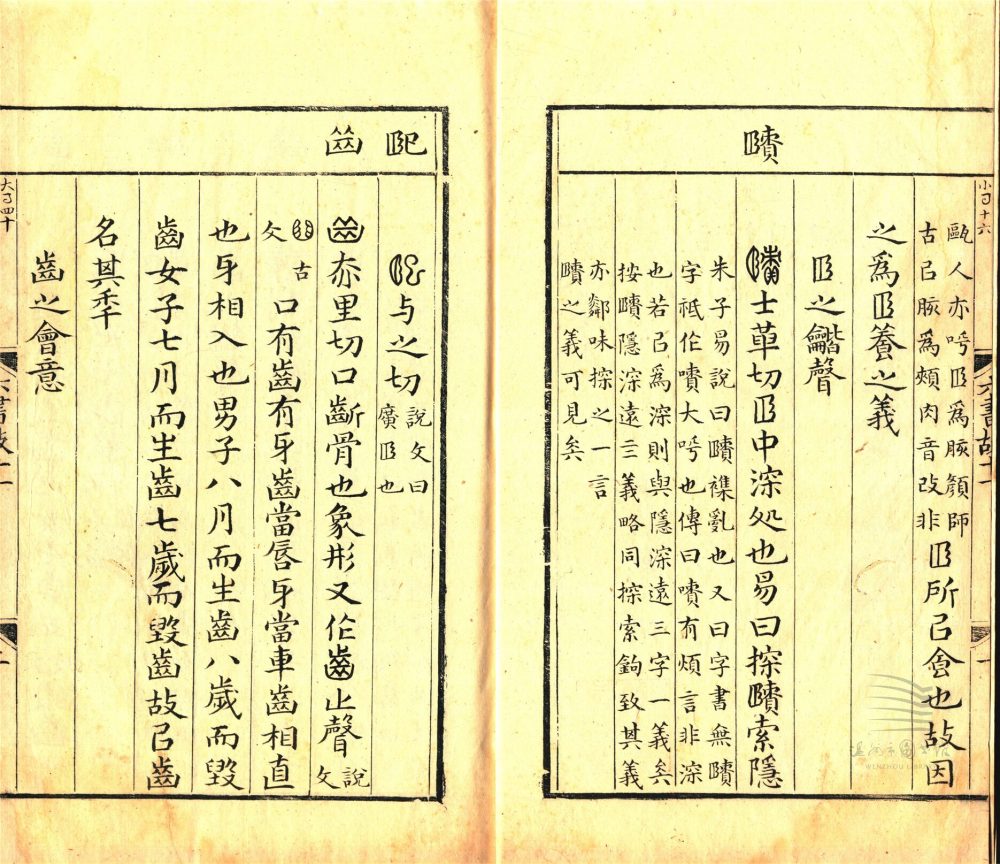 賾
小㔾十六
甌人亦呼𦣞爲胲顔師
古㠯胲爲頰肉音改非
𦣞所㠯食也故因
之爲𦣞養之義
𦣞之龤聲
士革切𦣞中深処也易曰探賾索隱
朱子易說曰賾襍亂也又曰字書無賾
字祇作嘖大呼也傳曰嘖有煩言非深
也若㠯爲深則與隱深遠三字一義矣
按賾隱深遠三義略同探索鉤致其義
亦鄰味探之一言
賾之義可見矣
六書故十一
一
WENZHOU LIBRARY
巸 齒
与之切
說文曰
廣𦣞也
里切口齗骨也象形又作齒止聲
說文
古文
口有齒有牙齒當唇牙當車齒相直
也牙相入也男子八月而生齒八歲而毀
齒女子七月而生齒七歲而毀齒故㠯齒
名其秊
齒之會意
大㔾四十